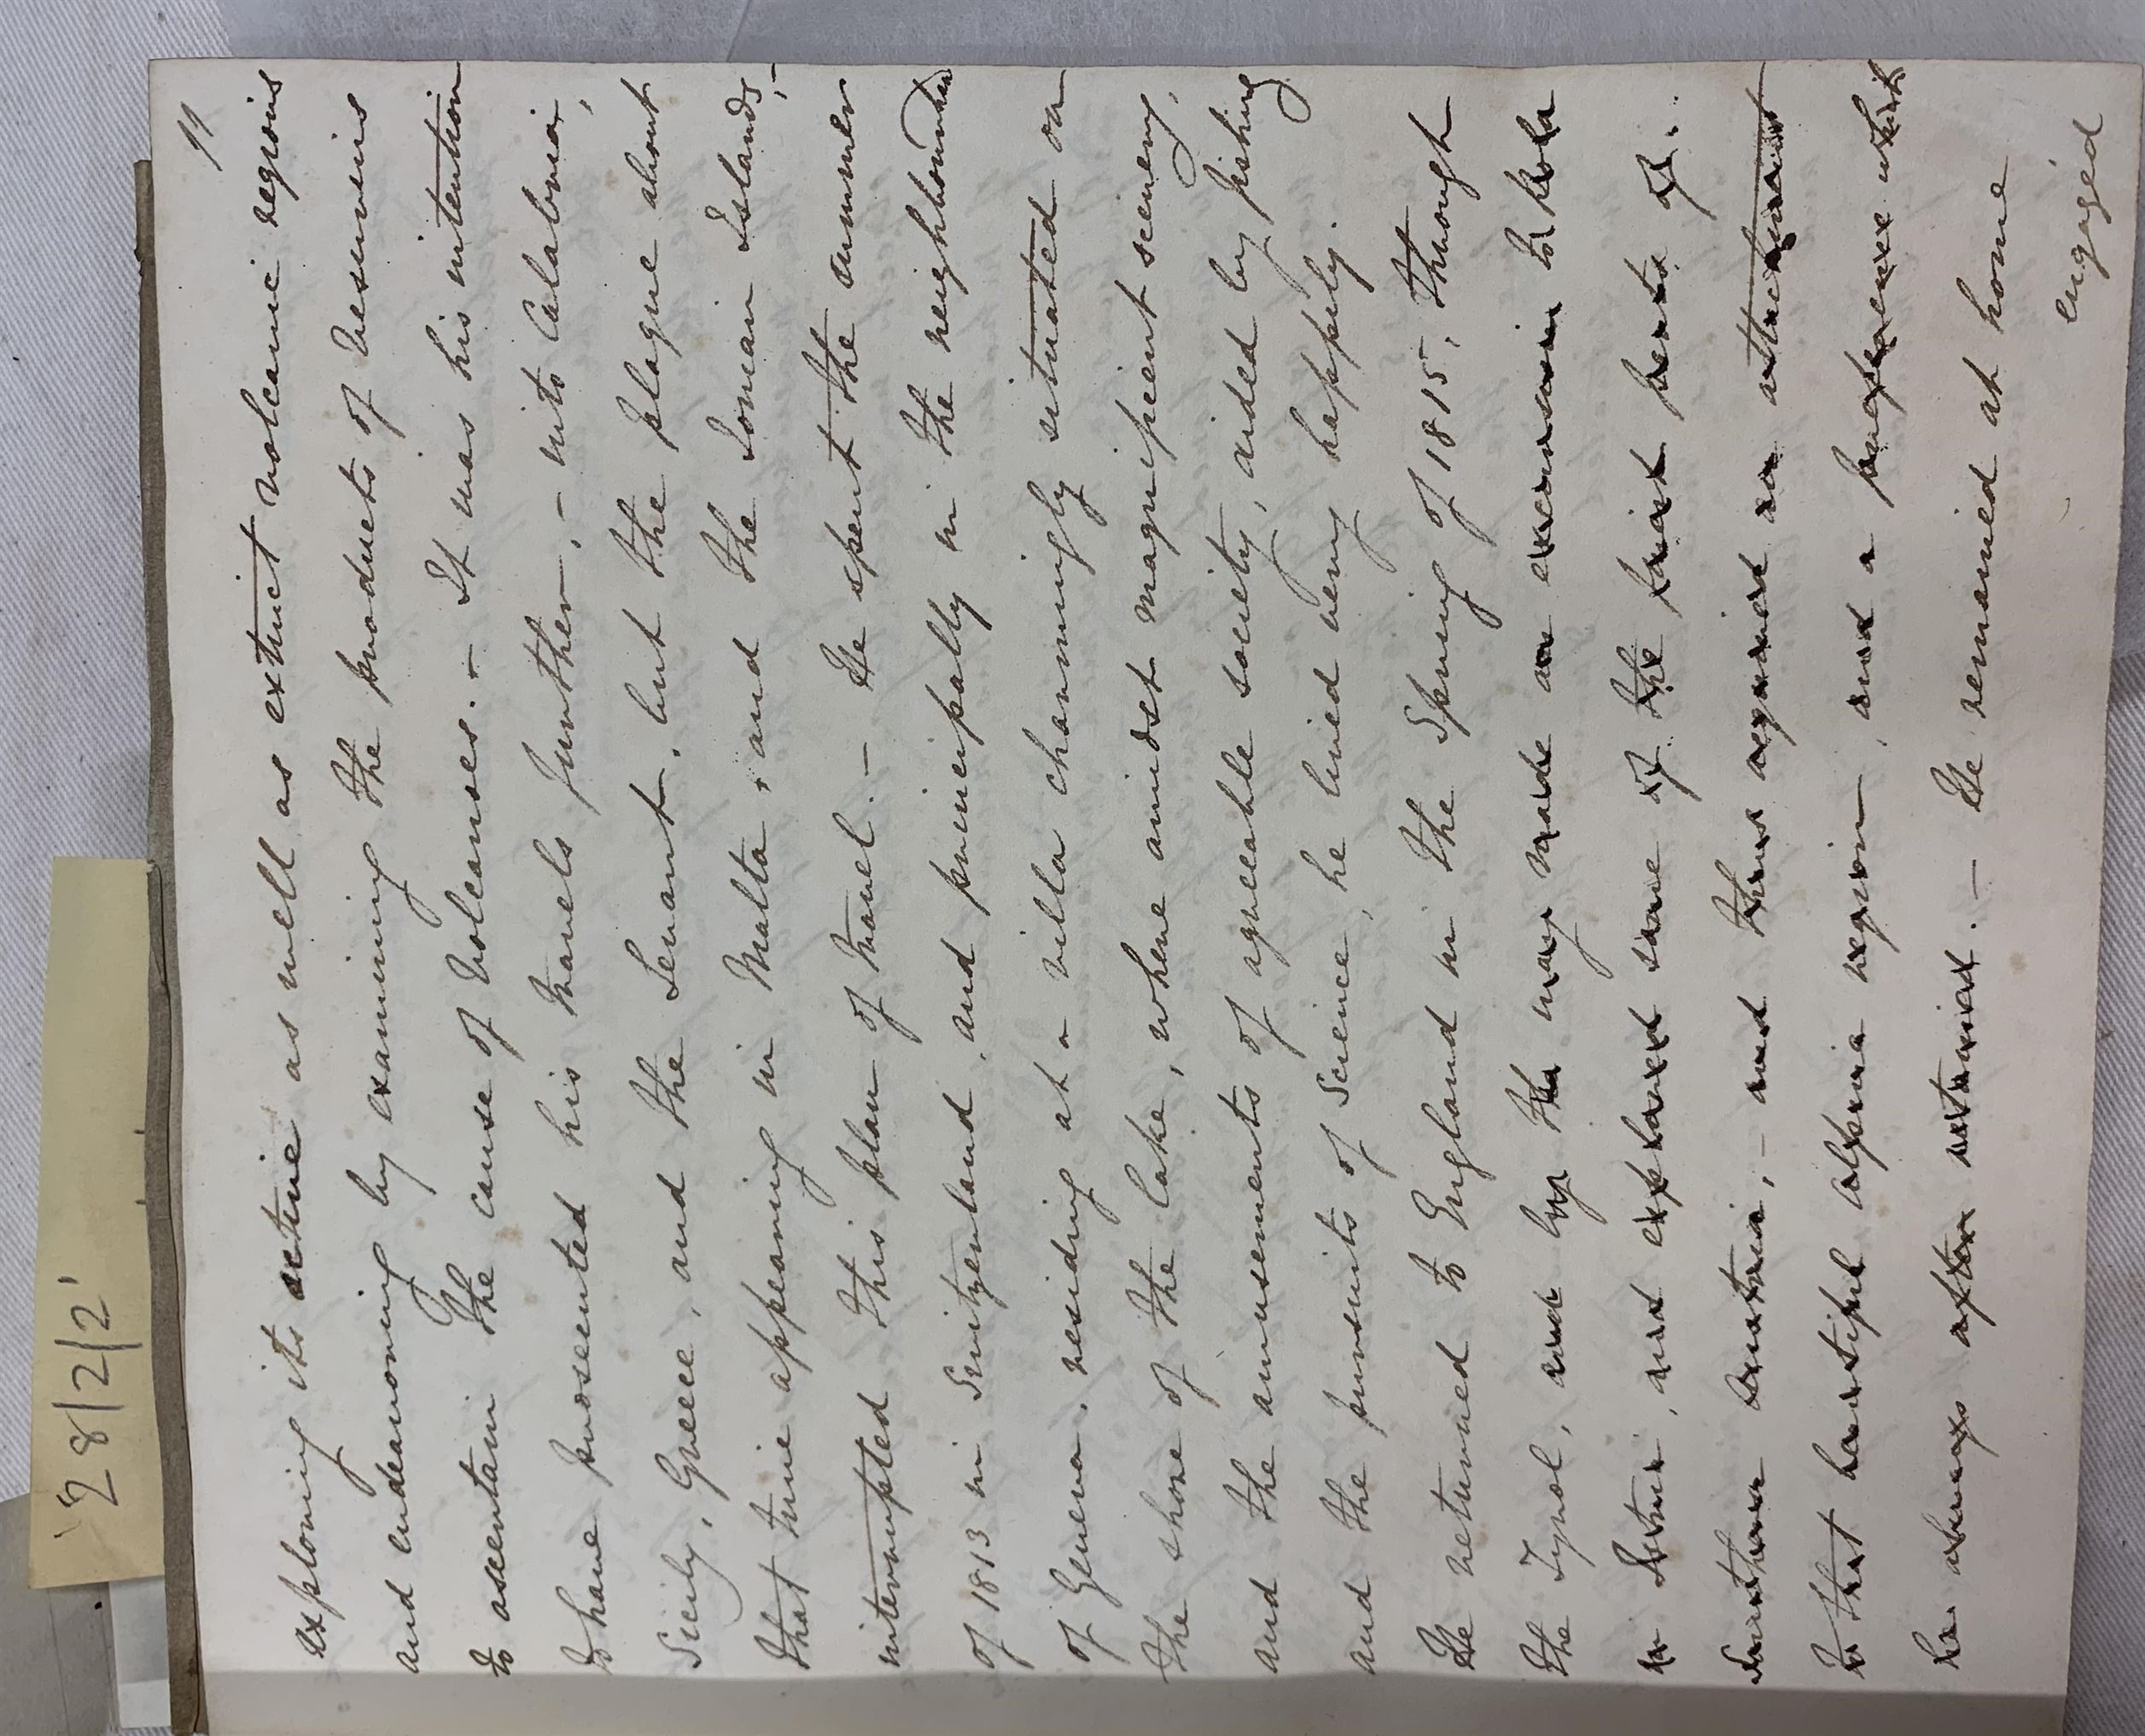 28/2/2
11
exploring its active as well as extinct volcanic regions
and endeavouring by examining the products of Vesuvius
to ascertain the cause of Volcanoes. – It was his intention
to have prosecuted his travels further, – into Calabria,
Sicily, Greece, and the Levant, but the plague about
that time appearing in Malta, and the Ionian Islands, –
interrupted this plan of travel. – He spent the summer
of 1813 in Switzerland, and principally in the neighbourhood
of Geneva, residing at a villa charmingly situated on
the shore of the lake, where amidst magnificent scenery,
and the amusements of agreeable society, aided by fishing
and the pursuits of Science, he lived very happily.
He returned to England in the Spring of 1815, through
the Tyrol, and by the way made an excursion to Pola
in Istria, and explored some of the finest parts of
Southern Austria, – and thus acquired an attachment
to that beautiful alpine region, and a preference which
he always after retained. – He remained at home
engaged